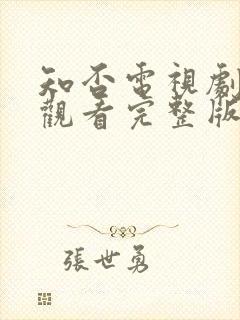 知否電視劇
觀看完整版
張世勇